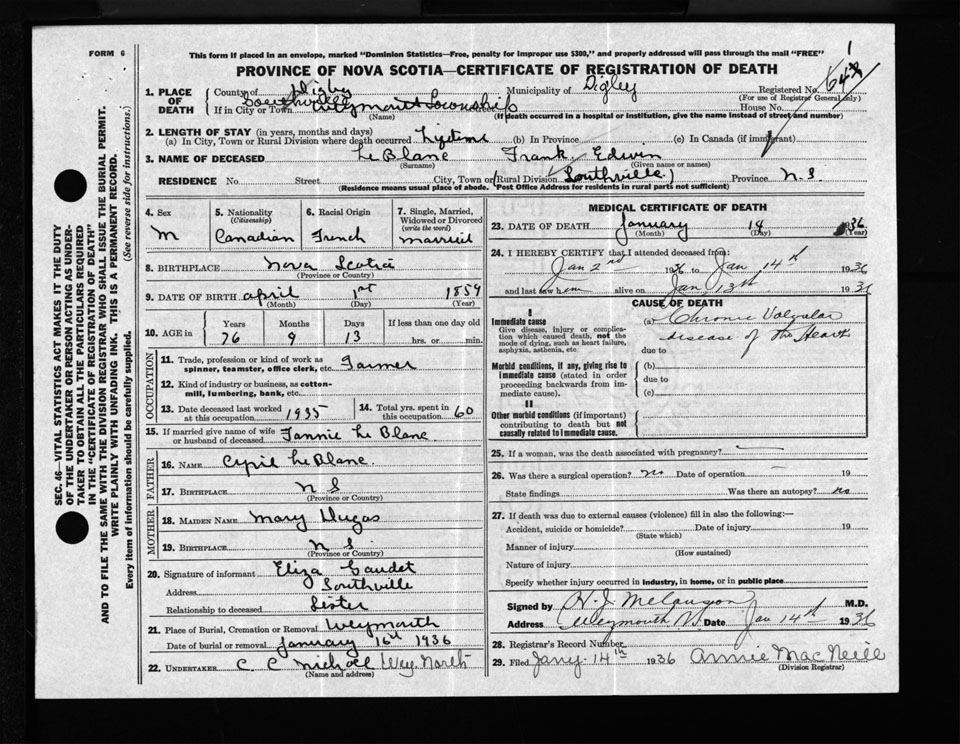 FORM 6
This form if placed in an envelope, marked "Dominion Statistics—Free, penalty for improper use $300," and properly addressed will pass through the mail "FREE"
1
PROVINCE OF NOVA SCOTIA—CERTIFICATE OF REGISTRATION OF DEATH
1. PLACE OF DEATH
County of Digby Municipality of Digby Registered No.
(For use of Registrar General only)
Southville Weymouth Township
If in City or Town Street House No.
(Name) (If death occurred in a hospital or institution, give the name instead of street and number)
2. LENGTH OF STAY (in years, months and days)
(a) In City, Town or Rural Division where death occurred Lifetime (b) In Province (c) In Canada (if immigrant)
3. NAME OF DECEASED LeBlanc Frank Edwin
(Surname) (Given name or names)
RESIDENCE No. Street City, Town or (Rural Division Southville) Province N.S.
(Residence means usual place of abode. Post Office Address for residents in rural parts not sufficient)
4. Sex M
5. Nationality (Citizenship) Canadian
6. Racial Origin French
7. Single, Married, Widowed or Divorced (write the word) married
8. BIRTHPLACE Nova Scotia
(Province or Country)
9. DATE OF BIRTH April 1st 1859
(Month) (Day) (Year)
10. AGE in Years Months Days If less than one day old
76 9 13 hrs. or min.
OCCUPATION
11. Trade, profession or kind of work as spinner, teamster, office clerk, etc. Farmer
12. Kind of industry or business, as cotton-mill, lumbering, bank, etc.
13. Date deceased last worked at this occupation 1935
14. Total yrs. spent in this occupation 60
15. If married give name of wife or husband of deceased Fannie LeBlanc
FATHER
16. NAME Cyril LeBlanc.
17. BIRTHPLACE N S
(Province or Country)
MOTHER
18. MAIDEN NAME Mary Dugas
19. BIRTHPLACE N S
(Province or Country)
20. Signature of informant Eliza Gaudet
Address Southville
Relationship to deceased Sister
21. Place of Burial, Cremation or Removal Weymouth
Date of burial or removal January 16th 1936
22. UNDERTAKER C. C Nichol Wey. North
(Name and address)
MEDICAL CERTIFICATE OF DEATH
23. DATE OF DEATH January 14 1936
(Month) (Day) (Year)
24. I HEREBY CERTIFY that I attended deceased from:
Jan 2nd 1936 to Jan 14th 1936
and last saw him alive on Jan 13th 1936
CAUSE OF DEATH
I
Immediate cause
Give disease, injury or complication which caused death, not the mode of dying, such as heart failure, asphyxia, asthenia, etc
(a) Chronic Valvular
disease of the Heart
due to
Morbid conditions, if any, giving rise to immediate cause (stated in order proceeding backwards from immediate cause).
(b)
due to
(c)
II
Other morbid conditions (if important) contributing to death but not causally related to immediate cause.
25. If a woman, was the death associated with pregnancy?
26. Was there a surgical operation? no Date of operation — 19
State findings Was there an autopsy? no
27. If death was due to external causes (violence) fill in also the following:—
Accident, suicide or homicide? Date of injury 19
(State which)
Manner of injury
(How sustained)
Nature of injury
Specify whether injury occurred in industry, in home, or in public place
Signed by M.D.
Address Weymouth N.S. Date Jan 14th 1936
28. Registrar's Record Number
29. Filed Jany. 14th 1936 Annie MacNeill
(Division Registrar)
SEC. 46—VITAL STATISTICS ACT MAKES IT THE DUTY
OF THE UNDERTAKER OR PERSON ACTING AS UNDER-
TAKER TO OBTAIN ALL THE PARTICULARS REQUIRED
IN THE "CERTIFICATE OF REGISTRATION OF DEATH"
AND TO FILE THE SAME WITH THE DIVISION REGISTRAR WHO SHALL ISSUE THE BURIAL PERMIT.
WRITE PLAINLY WITH UNFADING INK. THIS IS A PERMANENT RECORD.
Every item of information should be carefully supplied. (See reverse side for instructions.)